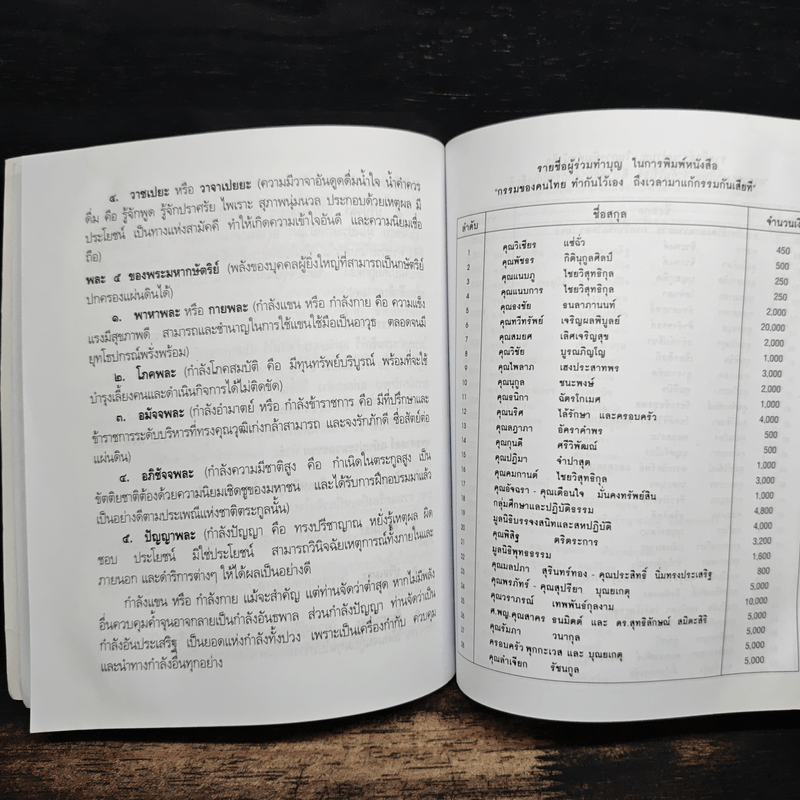 ๕. วาชเปยะ หรือ วาจาเปยยะ (ความมีวาจาอันดูดดื่มน้ำใจ น้ำคำควร
ดื่ม คือ รู้จักพูด รู้จักปราศรัย ไพเราะ สุภาพนุ่มนวล ประกอบด้วยเหตุผล มี
ประโยชน์ เป็นทางแห่งสามัคคี ทำให้เกิดความเข้าใจอันดี และความนิยมเชื่อ
ถือ)
พละ ๕ ของพระมหากษัตริย์ (พลังของบุคคลผู้ยิ่งใหญ่ที่สามารถเป็นกษัตริย์
ปกครองแผ่นดินได้)
๑. พาหาพละ หรือ กายพละ (กำลังแขน หรือ กำลังกาย คือ ความแข็ง
แรงมีสุขภาพดี สามารถและชำนาญในการใช้แขนใช้มือเป็นอาวุธ ตลอดจนมี
ยุทโธปกรณ์พรั่งพร้อม)
๒. โภคพละ (กำลังโภคสมบัติ คือ มีทุนทรัพย์บริบูรณ์ พร้อมที่จะใช้
บำรุงเลี้ยงคนและดำเนินกิจการได้ไม่ติดขัด)
๓. อมัจจพละ (กำลังอำมาตย์ หรือ กำลังข้าราชการ คือ มีที่ปรึกษาและ
ข้าราชการระดับบริหารที่ทรงคุณวุฒิเก่งกล้าสามารถ และจงรักภักดี ซื่อสัตย์ต่อ
แผ่นดิน)
๔. อภิชัจจพละ (กำลังความมีชาติสูง คือ กำเนิดในตระกูลสูง เป็น
ขัตติยชาติต้องด้วยความนิยมเชิดชูของมหาชน และได้รับการฝึกอบรมมาแล้ว
เป็นอย่างดีตามประเพณีแห่งชาติตระกูลนั้น)
๕. ปัญญาพละ (กำลังปัญญา คือ ทรงปรีชาญาณ หยั่งรู้เหตุผล ผิด
ชอบ ประโยชน์ มิใช่ประโยชน์ สามารถวินิจฉัยเหตุการณ์ทั้งภายในและ
ภายนอก และดำริการต่างๆ ให้ได้ผลเป็นอย่างดี
กำลังแขน หรือ กำลังกาย แม้จะสำคัญ แต่ท่านจัดว่าต่ำสุด หากไม่มีพลัง
อื่นควบคุมค้ำจุนอาจกลายเป็นกำลังอันธพาล ส่วนกำลังปัญญา ท่านจัดว่าเป็น
กำลังอันประเสริฐ เป็นยอดแห่งกำลังทั้งปวง เพราะเป็นเครื่องกำกับ ควบคุม
และนำทางกำลังอื่นทุกอย่าง
รายชื่อผู้ร่วมทำบุญ ในการพิมพ์หนังสือ
"กรรมของคนไทย ทำกันไว้เอง ถึงเวลามาแก้กรรมกันเสียที"
ลำดับ ชื่อสกุล จำนวนเงิ
1 คุณวิเชียร แซ่ถั่ว 450
2 คุณพัชธร กิติบุญกูลศิลป์ 500
3 คุณแนบภู ไชยวิสุทธิกุล 250
4 คุณแนบการ ไชยวิสุทธิกุล 250
5 คุณธงชัย ธนลาภานนท์ 2,000
6 คุณทวีทรัพย์ เจริญผลพิบูลย์ 20,000
7 คุณสมยศ เลิศเจริญสุข 2,000
8 คุณวิชัย บูรณภิญโญ 1,000
9 คุณไพลาภ เฮงประสาทพร 3,000
10 คุณนุกูล ชนะพงษ์ 2,000
11 คุณธนิกา ฉัตรโกเมศ 1,000
12 คุณนริศ ไล้รักษา และครอบครัว 4,000
13 คุณลฎาภา อัคราคำพร 500
14 คุณกุนดี ศรีวิพัฒน์ 500
15 คุณปฎิมา จำปาสุต 1,000
16 คุณคมกานต์ ไชยวิสุทธิกุล 3,000
คุณอัจฉรา - คุณเตือนใจ มั่นคงทรัพย์สิน 1,000
กลุ่มศึกษาและปฏิบัติธรรม 4,800
มูลนิธิบรรจงสนิทและสหปฏิบัติ 4,000
คุณพิสิฐ ตริตระการ 3,200
มูลนิธิพุทธธรรม 1,600
คุณมลปภา สุรินทร์ทอง - คุณประสิทธิ์ นิ่มทรงประเสริฐ 800
คุณพรภัทร์ - คุณสุปรียา บุณยเกตุ 5,000
คุณวราภรณ์ เทพพันธ์กุลงาม 10,000
ศ.พญ.คุณสาคร ธนมิตต์ และ ดร.สุทธิลักษณ์ สมิตะสิริ 5,000
คุณรัมภา วนากุล 5,000
ครอบครัว พุกกะเวส และ บุณยเกตุ 5,000
คุณลำเจียก รัชนกูล 5,000